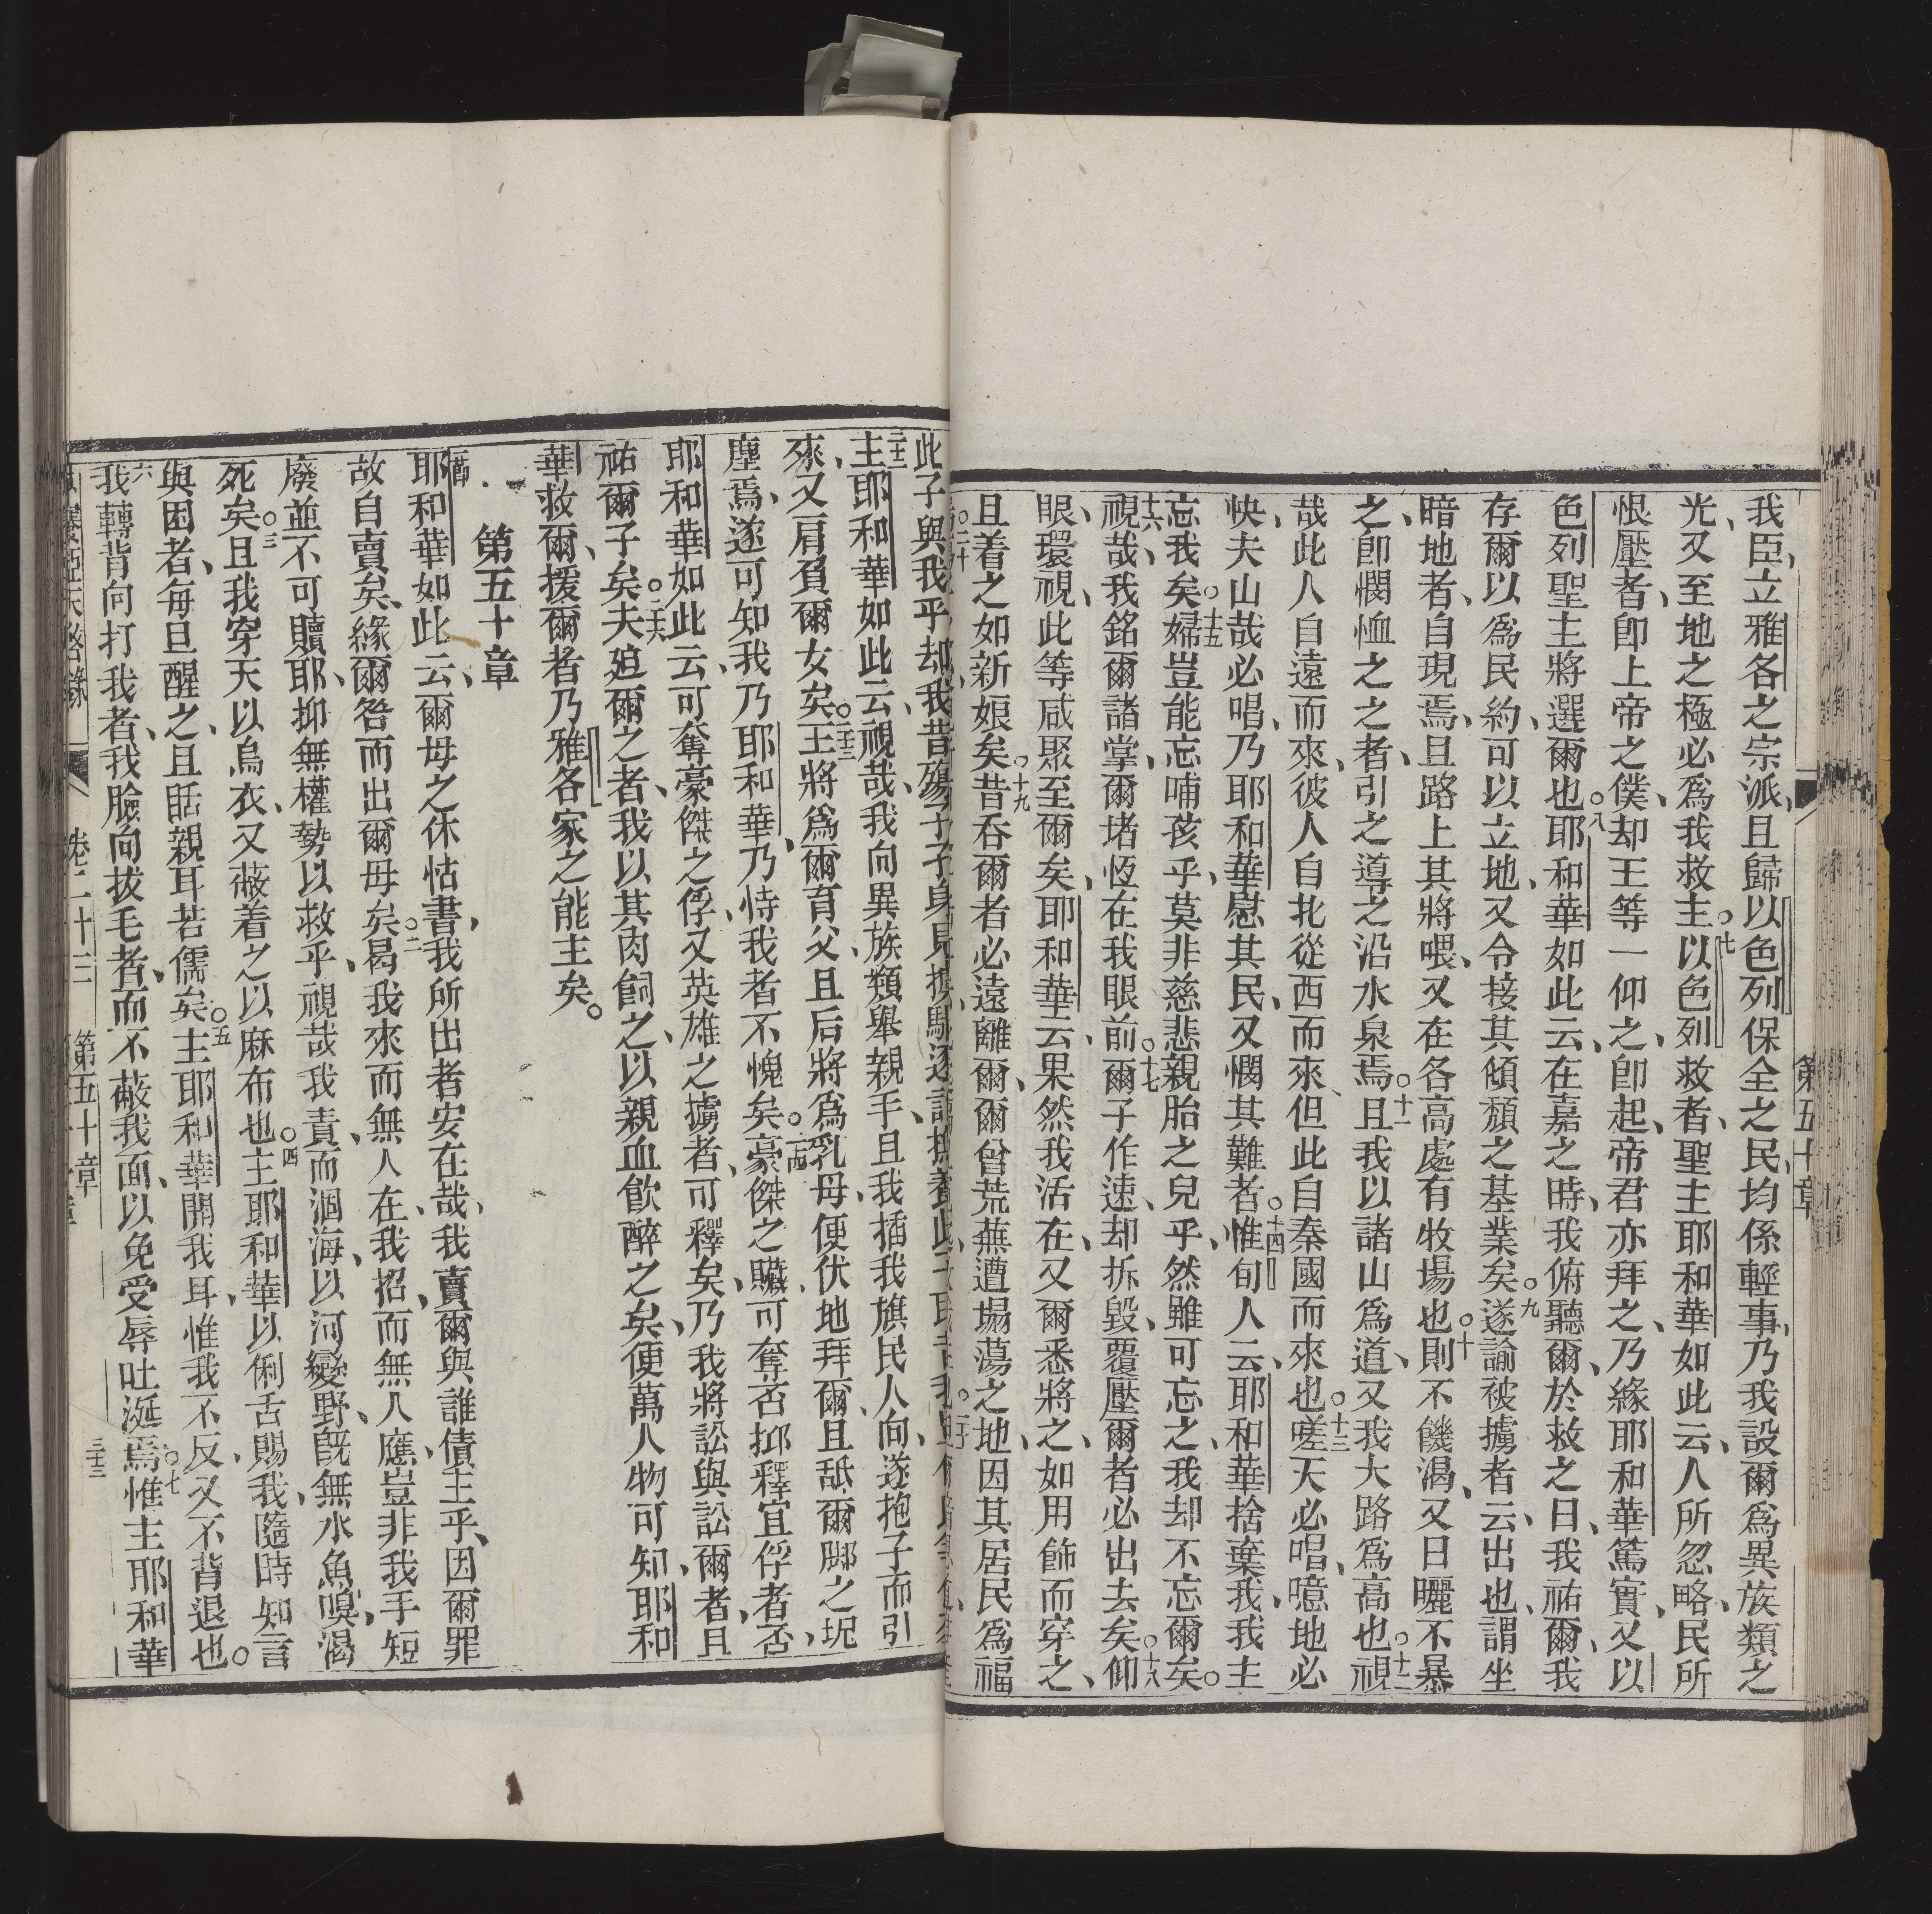 第五十章
我臣、立雅各之宗派、且歸以色列保全之民、均係輕事、乃我設爾爲異族類之
光、又至地之極必爲我救主。○七以色列救者、聖主耶和華如此云、人所忽略、民所
恨壓者、卽上帝之僕、却王等一仰之、卽起、帝君亦拜之、乃緣耶和華篤實、又以
色列聖主將選爾也。○八耶和華如此云、在嘉之時、我俯聽爾、於救之日、我祐爾、我
存爾以爲民約、可以立地、又令接其傾頹之基業矣。○九遂諭被擄者云、出也、謂坐
暗地者、自現焉、且路上其將喂、又在各高處有牧場也。○十則不饑渴、又日曬不暴
之、卽憫恤之之者、引之導之沿水泉焉。○十一且我以諸山爲道、又我大路爲高也。○十二視
哉此人自遠而來、彼人自北從西而來、但此自秦國而來也。○十三嗟天必唱、噫地必
怏、夫山哉必唱、乃耶和華慰其民、又憫其難者。○十四惟旬人云、耶和華捨棄我、我主
忘我矣。○十五婦豈能忘哺孩乎、莫非慈悲親胎之兒乎、然雖可忘之、我却不忘爾矣。○
十六視哉、我銘爾諸掌、爾堵恆在我眼前。○十七爾子作速、却拆毀、覆壓爾者必出去矣。○十八仰
眼、環視、此等咸聚至爾矣、耶和華云、果然我活在、又爾悉將之、如用飾而穿之、
且着之如新娘矣。○十九昔呑爾者必遠離爾、爾曾荒蕪遭塌蕩之地、因其居民爲福
此子與我乎、却我昔
二十二主耶和華如此云、視哉、我向異族類舉親手、且我插我旗民人向、遂抱子而引
來、又肩負爾女矣。○二十三王將爲爾育父、且后將爲乳母、便伏地拜爾、且舐爾腳之坭
塵焉、遂可知我乃耶和華、乃恃我者不愧矣。○二十四豪傑之贜可奪否、抑釋宜俘者否、
耶和華如此云、可奪豪傑之俘、又英雄之擄者、可釋矣、乃我將訟與訟爾者、且
祐爾子矣。○二十六夫廹爾之者、我以其肉飼之、以親血飮醉之矣、便萬人物可知、耶和
華救爾、援爾者乃雅各家之能主矣。
第五十章
一節耶和華如此云、爾母之休怙書、我所出者安在哉、我賣爾與誰債主乎、因爾罪
故自賣矣、緣爾咎而出爾母矣。○二曷我來而無人在、我招、而無人應、豈非我手短
廢並不可贖耶、抑無權勢以救乎、視哉我責、而涸海、以河變野、旣無水魚嗅、渴
死矣。○三且我穿天以烏衣、又蔽着之以麻布也。○四主耶和華以俐舌賜我、隨時知言
與困者、每旦醒之、且聒親耳若儒矣。○五主耶和華開我耳、惟我不反、又不背退也。○
六我轉背向打我者、我臉向拔毛者、而不蔽我面、以免受辱吐涎焉。○七惟主耶和華
卷二十三 第五十章